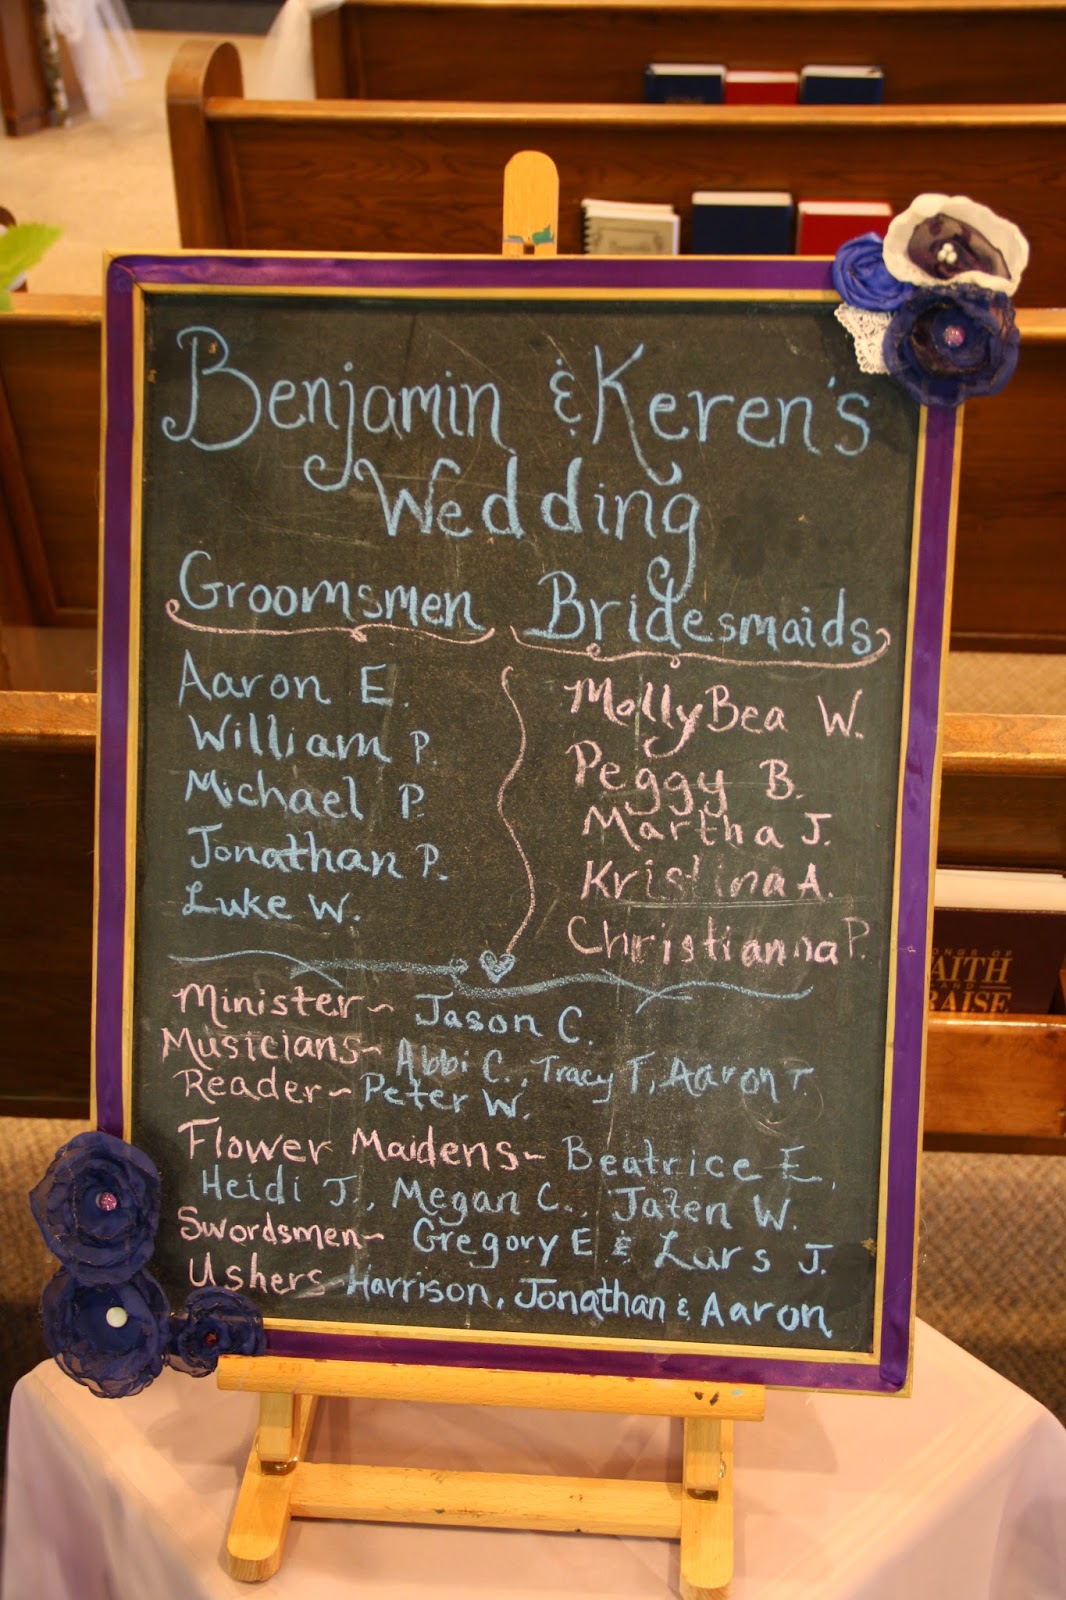 Benjamin & Keren's
Wedding
Groomsmen
Aaron E.
William P.
Michael P.
Jonathan P.
Luke W.
Bridesmaids
MollyBea W.
Peggy B.
Martha J.
Kristina A.
Christianna P.
Minister~ Jason C.
Musicians~ Abbi C., Tracy T., Aaron T.
Reader~ Peter W.
Flower Maidens~ Beatrice E.,
Heidi J., Megan C., Jazen W.
Swordsmen~ Gregory E. & Lars J.
Ushers~ Harrison, Jonathan & Aaron
SONGS OF
FAITH
AND
PRAISE